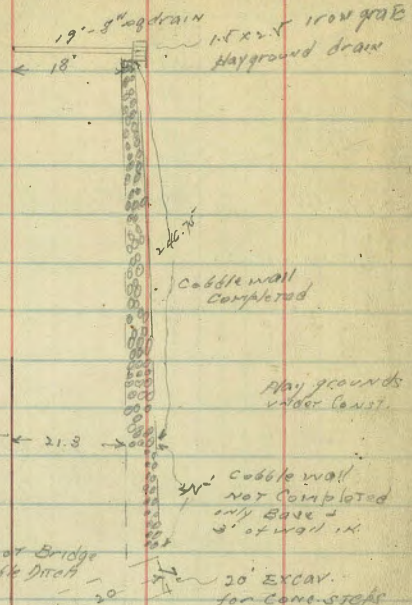 19'-8" drain
1.5 x 2.5 iron grate
Playground drain
18'
246.75
Cobble wall
Completed
Play grounds
under Const.
21.3
Cobble wall
Not Completed
only Base +
3' of wall in.
or Bridge
Ditch
20
20' EXCAV.
for Conc-steps